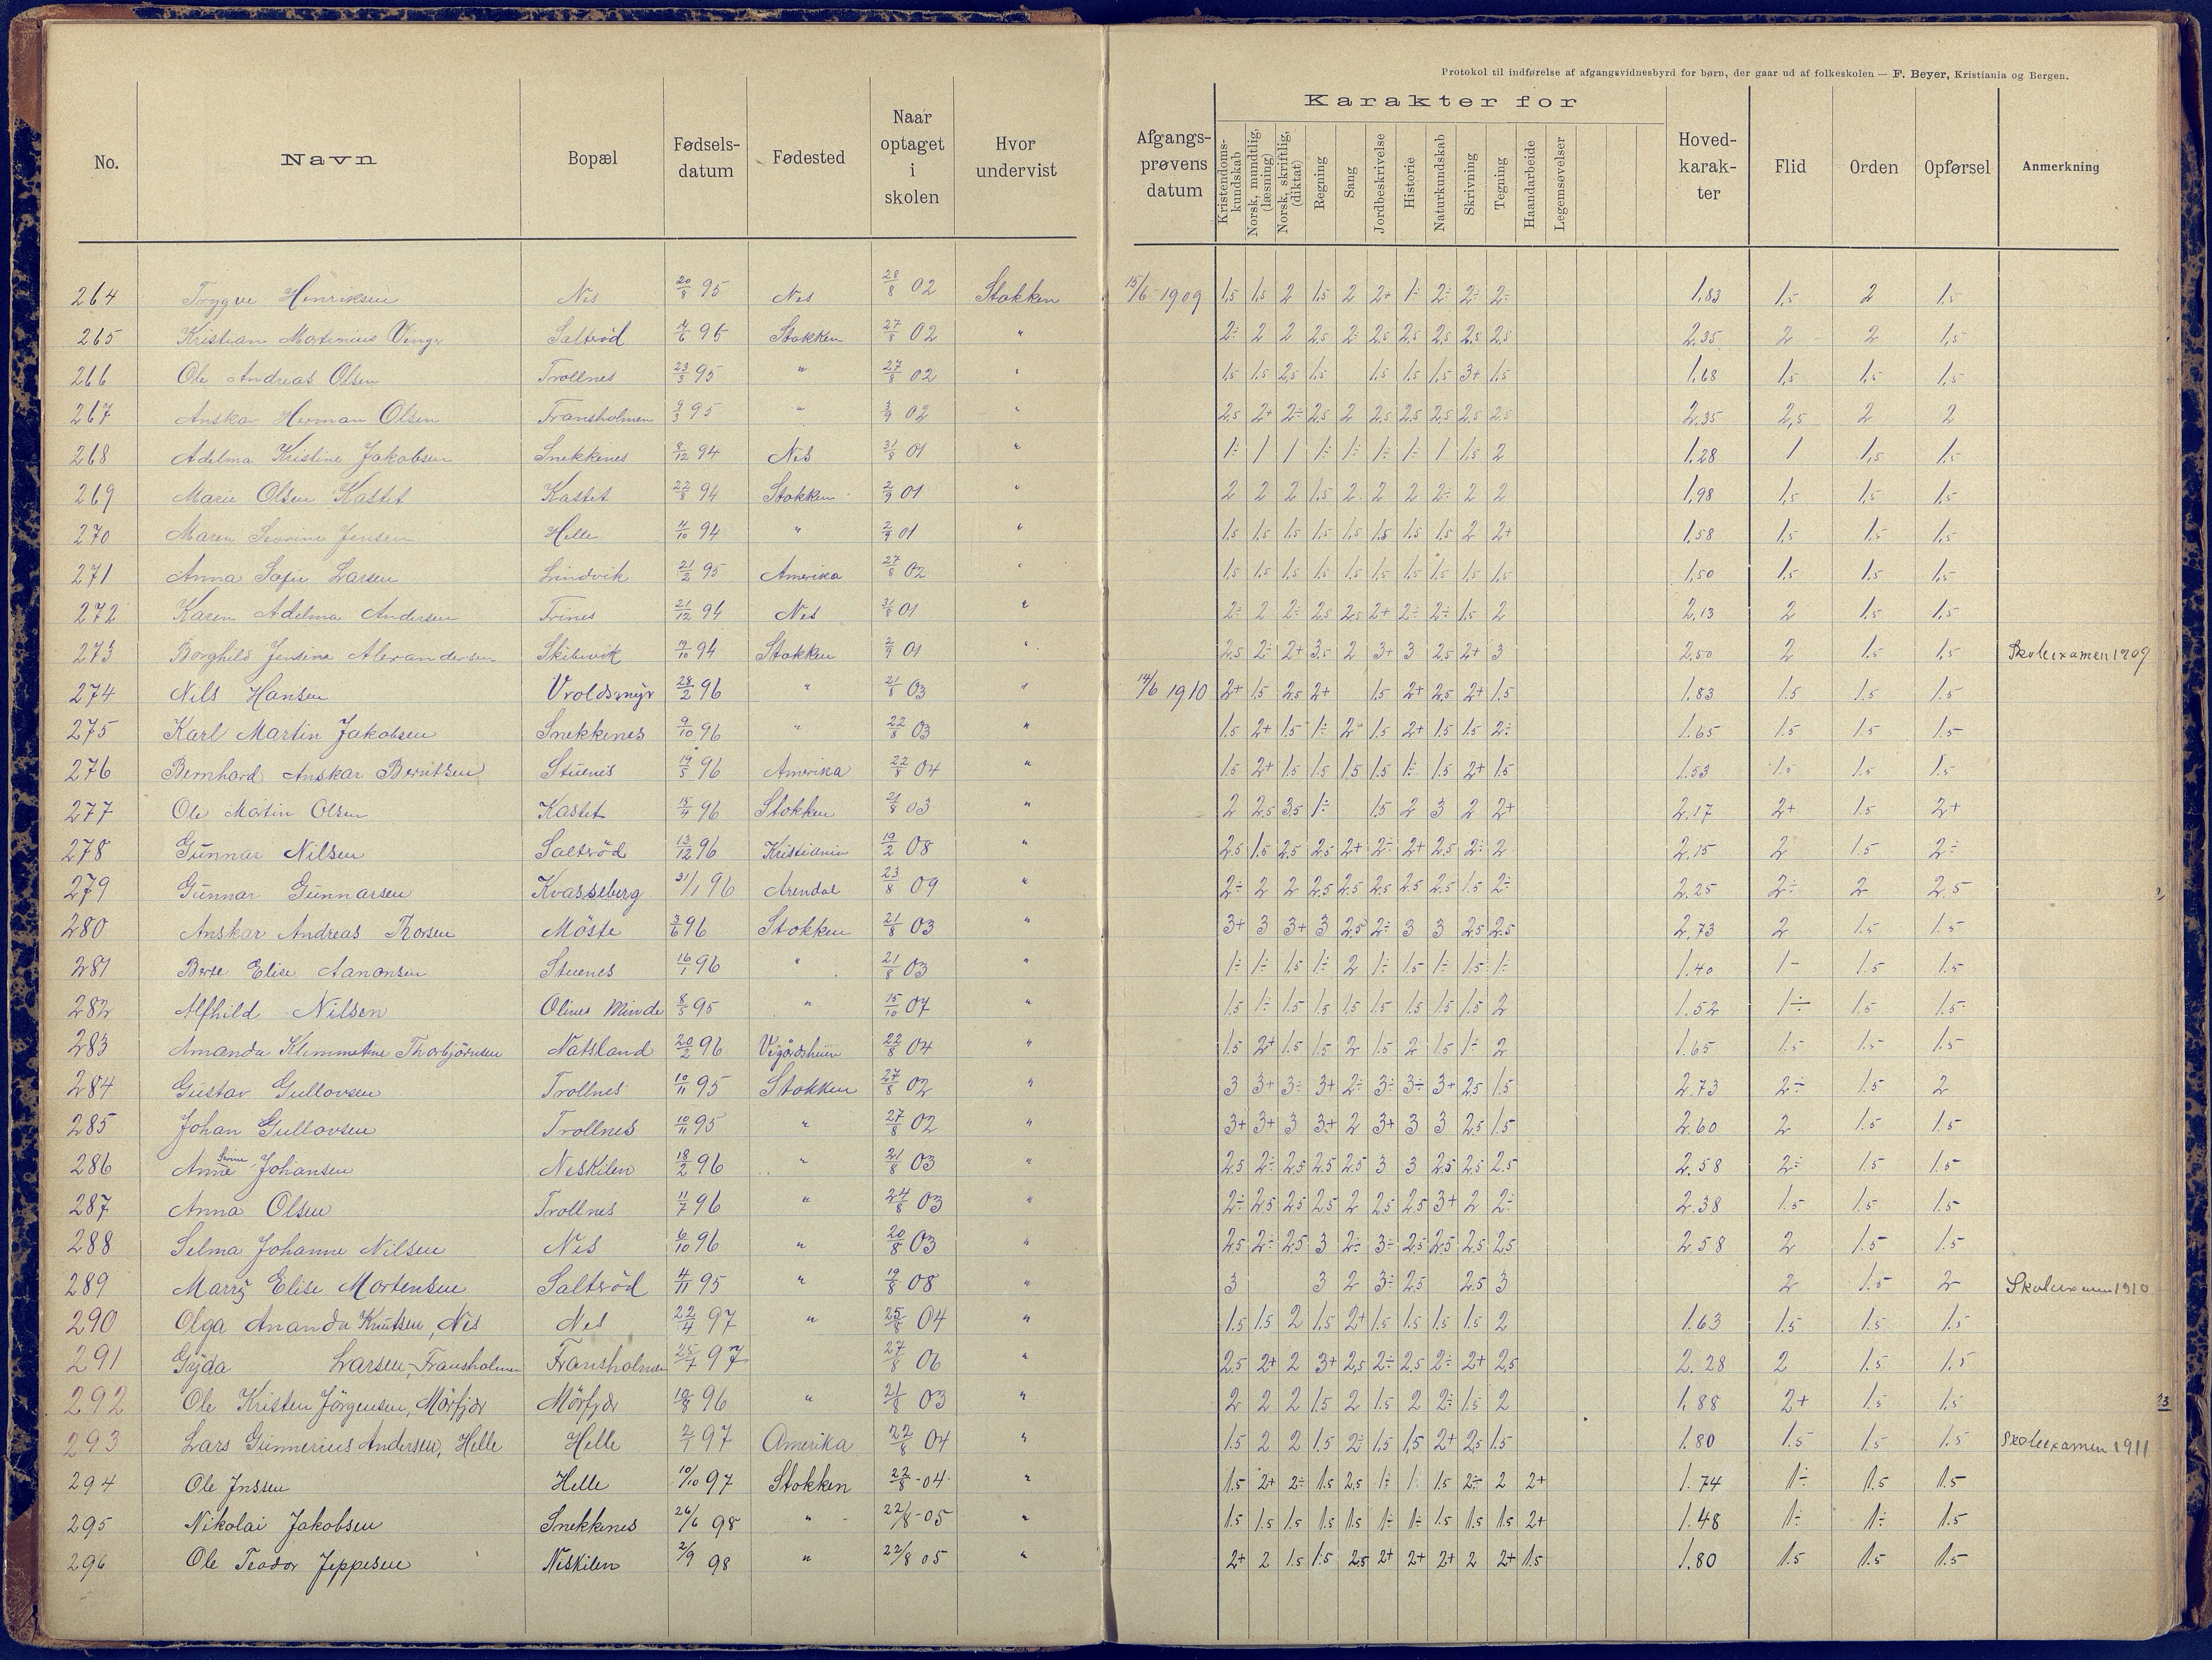 Protokol til indførelse af afgangsvidnesbyrd for børn, der gaar ud af folkeskolen — F. Beyer, Kristiania og Bergen.
No. Navn Bopæl Fødsels-datum Fødested Naar optaget i skolen Hvor undervist Afgangs-prøvens datum Karakter for Kristendoms-kundskab Norsk, mundtlig, (læsning) Norsk, skriftlig, (diktat) Regning Sang Jordbeskrivelse Historie Naturkundskab Skrivning Tegning Haandarbeide Legemsøvelser Hoved-karak-ter Flid Orden Opførsel Anmerkning
264 Trygve Henriksen Nes 20/8 95 Nes 28/8 02 Stokken 15/6 1909 1,5 1,5 2 1,5 2 2+ 1÷ 2÷ 2÷ 2÷ 1,83 1,5 2 1,5
265 Kristian Martinius Saltrød 95 Stokken 27/8 02 " 2÷ 2 2 2,5 2÷ 2,5 2,5 2,5 2,5 2,5 2,35 2 2 1,5
266 Ole Andreas Olsen Trollnes 23/3 95 " 27/8 02 " 1,5 1,5 2,5 1,5 1,5 1,5 1,5 3+ 1,5 1,68 1,5 1,5 1,5
267 Anskar Herman Olsen Fransholmen 9/3 95 " 3/9 02 " 2,5 2+ 2÷ 2,5 2 2,5 2,5 2,5 2,5 2,5 2,35 2,5 2 2
268 Adelma Kristine Jakobsen Snekkenes 8/12 94 Nes 31/8 01 " 1÷ 1 1 1÷ 1÷ 1÷ 1÷ 1 1,5 2 1,28 1 1,5 1,5
269 Marie Olsen Kastet Kastet 22/8 94 Stokken 2/9 01 " 2 2 2 1,5 2 2 2 2÷ 2 2 1,98 1,5 1,5 1,5
270 Maren Severine Jensen Helle 94 " 2/9 01 " 1,5 1,5 1,5 1,5 1,5 1,5 1,5 1,5 2 2+ 1,58 1,5 1,5 1,5
271 Anna Sofie Larsen Lindvik 21/2 95 Amerika 27/8 02 " 1,5 1,5 1,5 1,5 1,5 1,5 1,5 1,5 1,5 1,5 1,50 1,5 1,5 1,5
272 Karen Adelma Andersen Trines 21/12 94 Nes 31/8 01 " 2÷ 2 2÷ 2,5 2,5 2+ 2÷ 2÷ 1,5 2 2,13 2 1,5 1,5
273 Borghild Jensine Alexandersen Skibevik 94 Stokken 2/9 01 " 2,5 2÷ 2+ 3,5 2 3+ 3 2,5 2+ 3 2,50 2 1,5 1,5 Skoleexamen 1909
274 Nils Hansen Vroldsmyr 28/2 96 " 21/8 03 " 14/6 1910 2+ 1.5 2.5 2+ 1.5 2+ 2.5 2+ 1.5 1.83 1.5 1.5 1.5
275 Karl Martin Jakobsen Snekkenes 9/10 96 " 22/8 03 " 1.5 2+ 1.5 1÷ 2 1.5 2+ 1.5 1.5 2÷ 1.65 1.5 1.5 1.5
276 Bernhard Anskar Berntsen Stuenes 19/5 96 Amerika 22/8 04 " 1.5 2+ 1.5 1.5 1.5 1.5 1÷ 1.5 2+ 1.5 1.53 1.5 1.5 1.5
277 Ole Martin Olsen Kastet 15/4 96 Stokken 21/8 03 " 2 2.5 3.5 1÷ 1.5 2 3 2 2+ 2.17 2+ 1.5 2+
278 Gunnar Nilsen Saltrød 13/12 96 Kristiania 19/2 08 " 2.5 1.5 2.5 2.5 2+ 2÷ 2+ 2.5 2÷ 2 2.15 2 1.5 2÷
279 Gunnar Gunnarsen Kvasseberg 31/1 96 Arendal 23/8 09 " 2÷ 2 2 2.5 2.5 2.5 2.5 2.5 1.5 2÷ 2.25 2÷ 2 2.5
280 Anskar Andreas Thorsen Møste 3/6 96 Stokken 21/8 03 " 3+ 3 3+ 3 2.5 2÷ 3 3 2.5 2.5 2.73 2 1.5 1.5
281 Elise Aanonsen Stuenes 16/1 96 " 21/8 03 " 1÷ 1÷ 1.5 1÷ 2 1÷ 1.5 1÷ 1.5 1÷ 1.40 1- 1.5 1.5
282 Alfhild Nilsen Olines Minde 8/5 95 " 15/10 07 " 1.5 1÷ 1.5 1.5 1.5 1.5 1.5 1.5 1.5 2 1.52 1÷ 1.5 1.5
283 Amanda Klemmetine Thorbjørnsen Natsland 20/2 96 22/8 04 " 1.5 2+ 1.5 1.5 2 1.5 2 1.5 1÷ 2 1.65 1.5 1.5 1.5
284 Gustav Gullovsen Trollnes 10/11 95 Stokken 27/8 02 " 3 3+ 3÷ 3+ 2÷ 3÷ 3÷ 3+ 2.5 1.5 2.73 2÷ 1.5 2
285 Johan Gullovsen Trollnes 10/11 95 " 27/8 02 " 3+ 3+ 3 3+ 2 3+ 3 3 2.5 1.5 2.60 2 1.5 1.5
286 Anne Serine Johansen Neskilen 18/2 96 " 21/8 03 " 2.5 2÷ 2.5 2.5 2.5 3 3 2.5 2.5 2.5 2.58 2÷ 1.5 1.5
287 Anna Olsen Trollnes 11/7 96 " 24/8 03 " 2÷ 2.5 2.5 2.5 2 2.5 2.5 3+ 2 2÷ 2.38 1.5 1.5 1.5
288 Selma Johanne Nilsen Nes 6/10 96 " 20/8 03 " 2.5 2÷ 2.5 3 2÷ 3÷ 2.5 2.5 2.5 2.5 2.58 2 1.5 1.5
289 Marry Elise Mortensen Saltrød 4/11 95 " 19/8 08 " 3 3 2 3÷ 2.5 2.5 3 2 1.5 2 Skoleexamen 1910
290 Olga Ananda Knutsen, Nes Nes 22/4 97 " 25/8 04 " 1.5 1.5 2 1.5 2+ 1.5 1.5 1.5 1.5 2 1.63 1.5 1.5 1.5
291 Gyda Larsen, Fransholmen Fransholmen 25/7 97 27/8 06 " 2.5 2+ 2 3+ 2.5 2÷ 2.5 2÷ 2+ 2.5 2.28 2 1.5 1.5
292 Ole Kristen Jørgensen, Mørfjær Mørfjær 96 " 21/8 03 " 2 2 2 1.5 2 1.5 2 2÷ 1.5 2 1.88 2+ 1.5 1.5
293 Lars Gunnerius Andersen, Helle Helle 97 Amerika 22/8 04 " 1.5 2 2 1.5 2÷ 1.5 1,5 2+ 2,5 1.5 1.80 1.5 1.5 1.5 Skoleexamen 1911
294 Ole Jnssen Helle 10/10 97 Stokken 22/8 -04 " 1.5 2+ 2÷ 1.5 2.5 1÷ 1 1.5 2÷ 2 2+ 1.74 1÷ 1.5 1.5
295 Nikolai Jakobsen Snekkenes 26/6 98 " 22/8 -05 " 1.5 1.5 1.5 1.5 1.5 1÷ 1÷ 1.5 1.5 1.5 2+ 1.48 1÷ 1÷ 1.5
296 Ole Teodor Jeppesen Neskilen 2/9 98 " 22/8 05 " 2+ 2 1.5 1.5 2.5 2+ 2+ 2+ 2 2+ 1.5 1.80 1.5 1.5 1.5